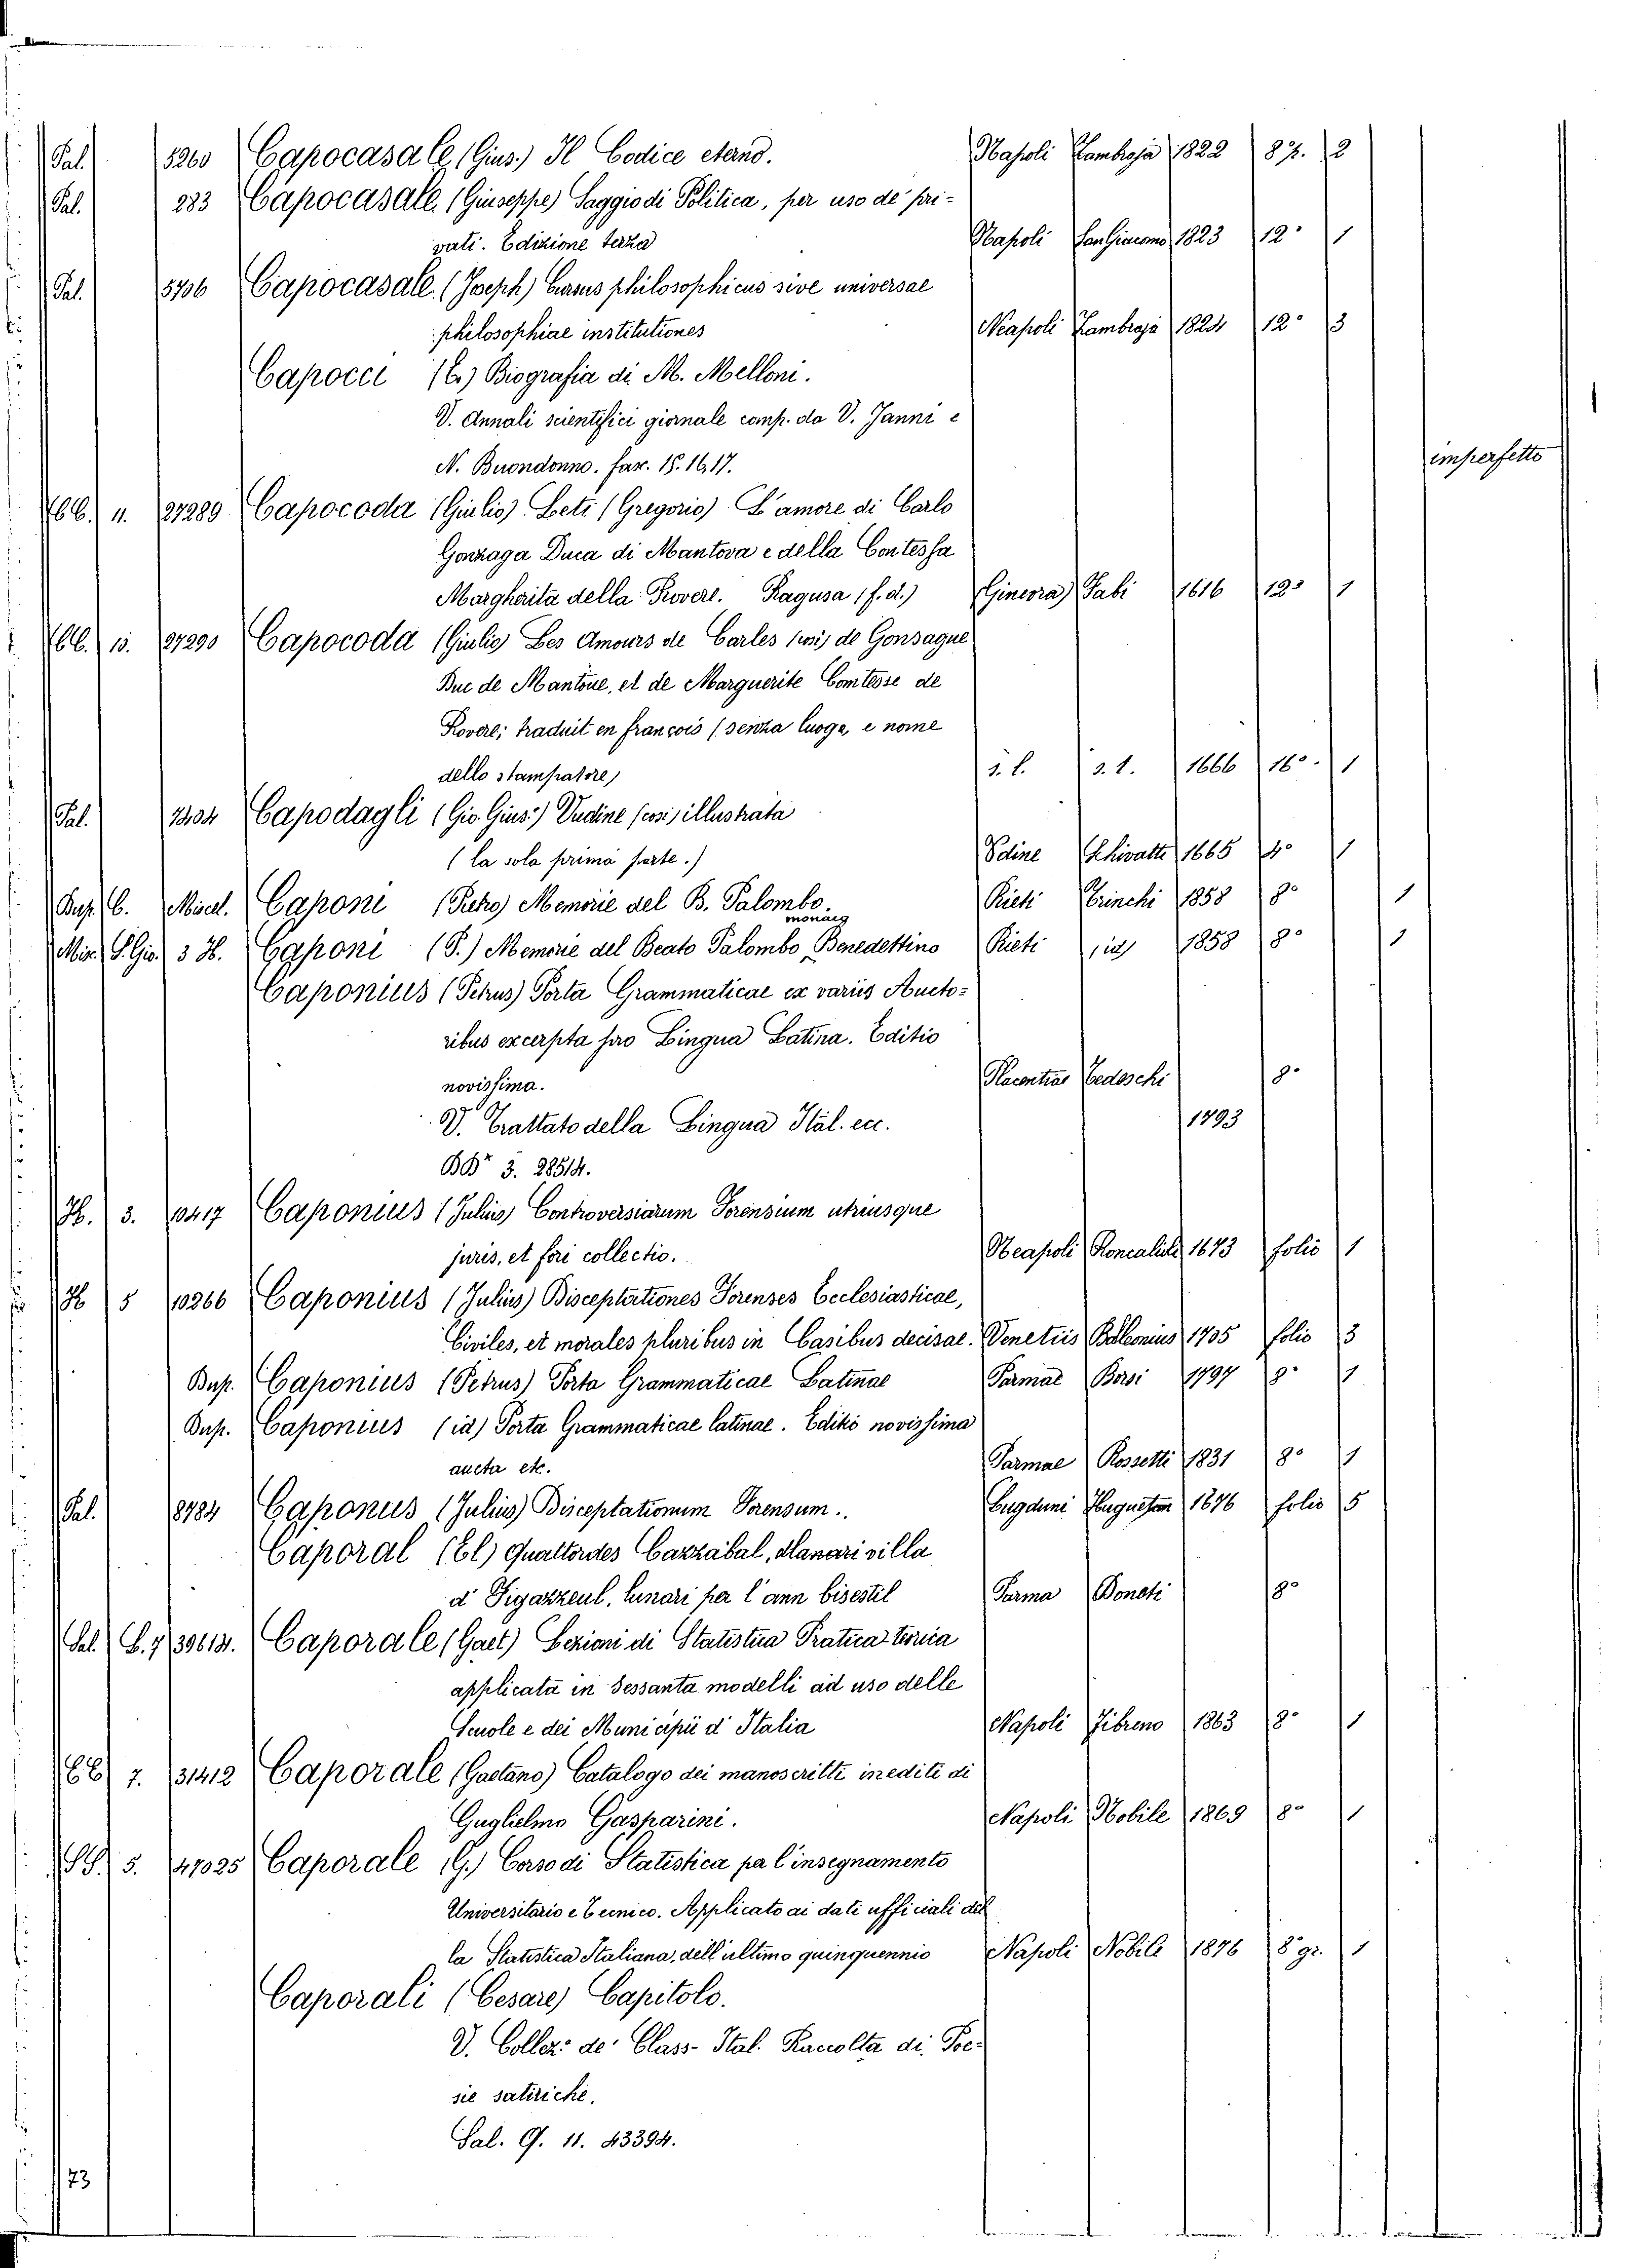 Pal. 5260 Capocasale (Gius.) Il Codice eterno. Napoli Zambraja 1822 8 p. 2
Pal. 283 Capocasale (Giuseppe) Saggio di Politica, per uso de' pri-
vati. Edizione terza Napoli San Giacomo 1823 12° 1
Pal. 5706 Capocasale (Joseph) Cursus philosophicus sive universae
philosophiae institutiones Neapoli Zambraja 1824 12° 3
Capocci (E.) Biografia di M. Melloni.
V. Annali scientifici giornale comp. da V. Janni e
N. Buondonno. fax. 15. 16, 17. imperfetto
bb. 11. 27289 Capocoda (Giulio) Leti (Gregorio) L'amore di Carlo
Gonzaga Duca di Mantova e della Contessa
Margherita della Rovere. Ragusa (f. d.) (Ginevra) Fabi 1616 12° 1
bb. 13. 27290 Capocoda (Giulio) Les Amours de Carles (cosi) de Gonsague
Duc de Mantoue, et de Marguerite Comtesse de
Rovere; traduit en françois (senza luogo, e nome
dello stampatore) s. l. s. t. 1666 16°. 1
Pal. Capodagli (Gio. Gius:) Vudine (cosi) illustrata
(la sola prima parte.) Udine Schiratti 1665 4° 1
Busp. C. Miscel. Caponi (Pietro) Memorie del B. Palombo. Rieti Trinchi 1858 8° 1
monaco
Misc. S. Gio. 3 H. Caponi (P.) Memorie del Beato Palombo Benedettino Rieti (id) 1858 8° 1
Caponius (Petrus) Porta Grammaticae ex variis Aucto-
ribus excerpta pro Lingua Latina. Editio
novissima. Placentiae Tedeschi 8°
V. Trattato della Lingua Ital. ecc. 1793
BB 3. 28514.
H. 3. 10417 Caponius (Julius) Controversiarum Forensium utriusque
juris, et fori collectio. Neapoli 1673 folio 1
H 5 10266 Caponius (Julius) Disceptationes Forenses Ecclesiasticae,
Civiles, et morales pluribus in Casibus decisae. Venetiis Balleonius 1735 folio 3
Busp. Caponius (Petrus) Porta Grammaticae Latinae Parmae Borsi 1797 8° 1
Busp. Caponius (id) Porta Grammaticae latinae. Editio novissima
aucta etc. Parmae Rossetti 1831 8° 1
Pal. 8784 Caponus (Julius) Disceptationum Forensum.. Lugduni Huguetan 1676 folio 5
Caporal (El) Quattordes Cazzabal, Manari villa
d' Figazzeul, lunari per l'ann bisestil Parma Donati 8°
Sal. E. 7 39613. Caporale (Gaet) Lezioni di Statistica Pratica-teorica
applicata in sessanta modelli ad uso delle
Scuole e dei Municipii d' Italia Napoli Fibreno 1863 8° 1
EE 7. 31412 Caporale (Gaetano) Catalogo dei manoscritti inediti di
Guglielmo Gasparini. Napoli Nobile 1869 8° 1
SS. 5. 47025 Caporale (G.) Corso di Statistica per l'insegnamento
Universitario e Tecnico. Applicato ai dati ufficiali del
la Statistica Italiana, dell'ultimo quinquennio Napoli Nobile 1876 8° gr. 1
Caporali (Cesare) Capitolo.
V. Collez: de' Class. Ital. Raccolta di Poe-
sie satiriche.
Sal. G. 11. 43394.
73